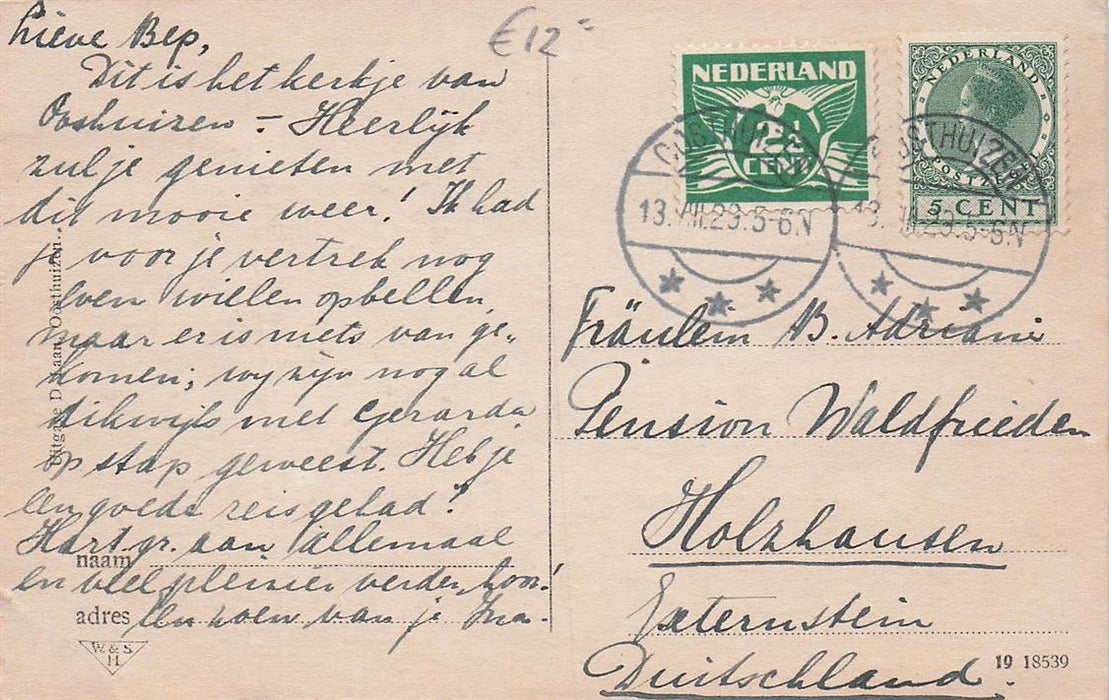 Lieve Bep,
Dit is het kerkje van
Ooshuizen – Heerlijk
zul je genieten met
dit mooie weer! Ik had
je voor je vertrek nog
even willen opbellen,
maar er is niets van ge-
komen; wij zijn nog al
dikwijls met Gerarda
op stap geweest. Heb je
een goede reis gehad?
Hart. gr. aan allemaal
en veel plezier verder, hoor!
Een zoen van je Ina.
€12-
NEDERLAND
2½
CENT
NEDERLAND
POSTZEGEL
5 CENT
OOSTHUIZEN
13.VIII.29.5-6N
OOSTHUIZEN
13.VIII.29.5-6N
Fräulein B. Adriani
Pension Waldfrieden
Holzhausen
Externstein
Duitschland.
Uitgave Oosthuizen.
naam
adres
W. & S.
H.
19 18539